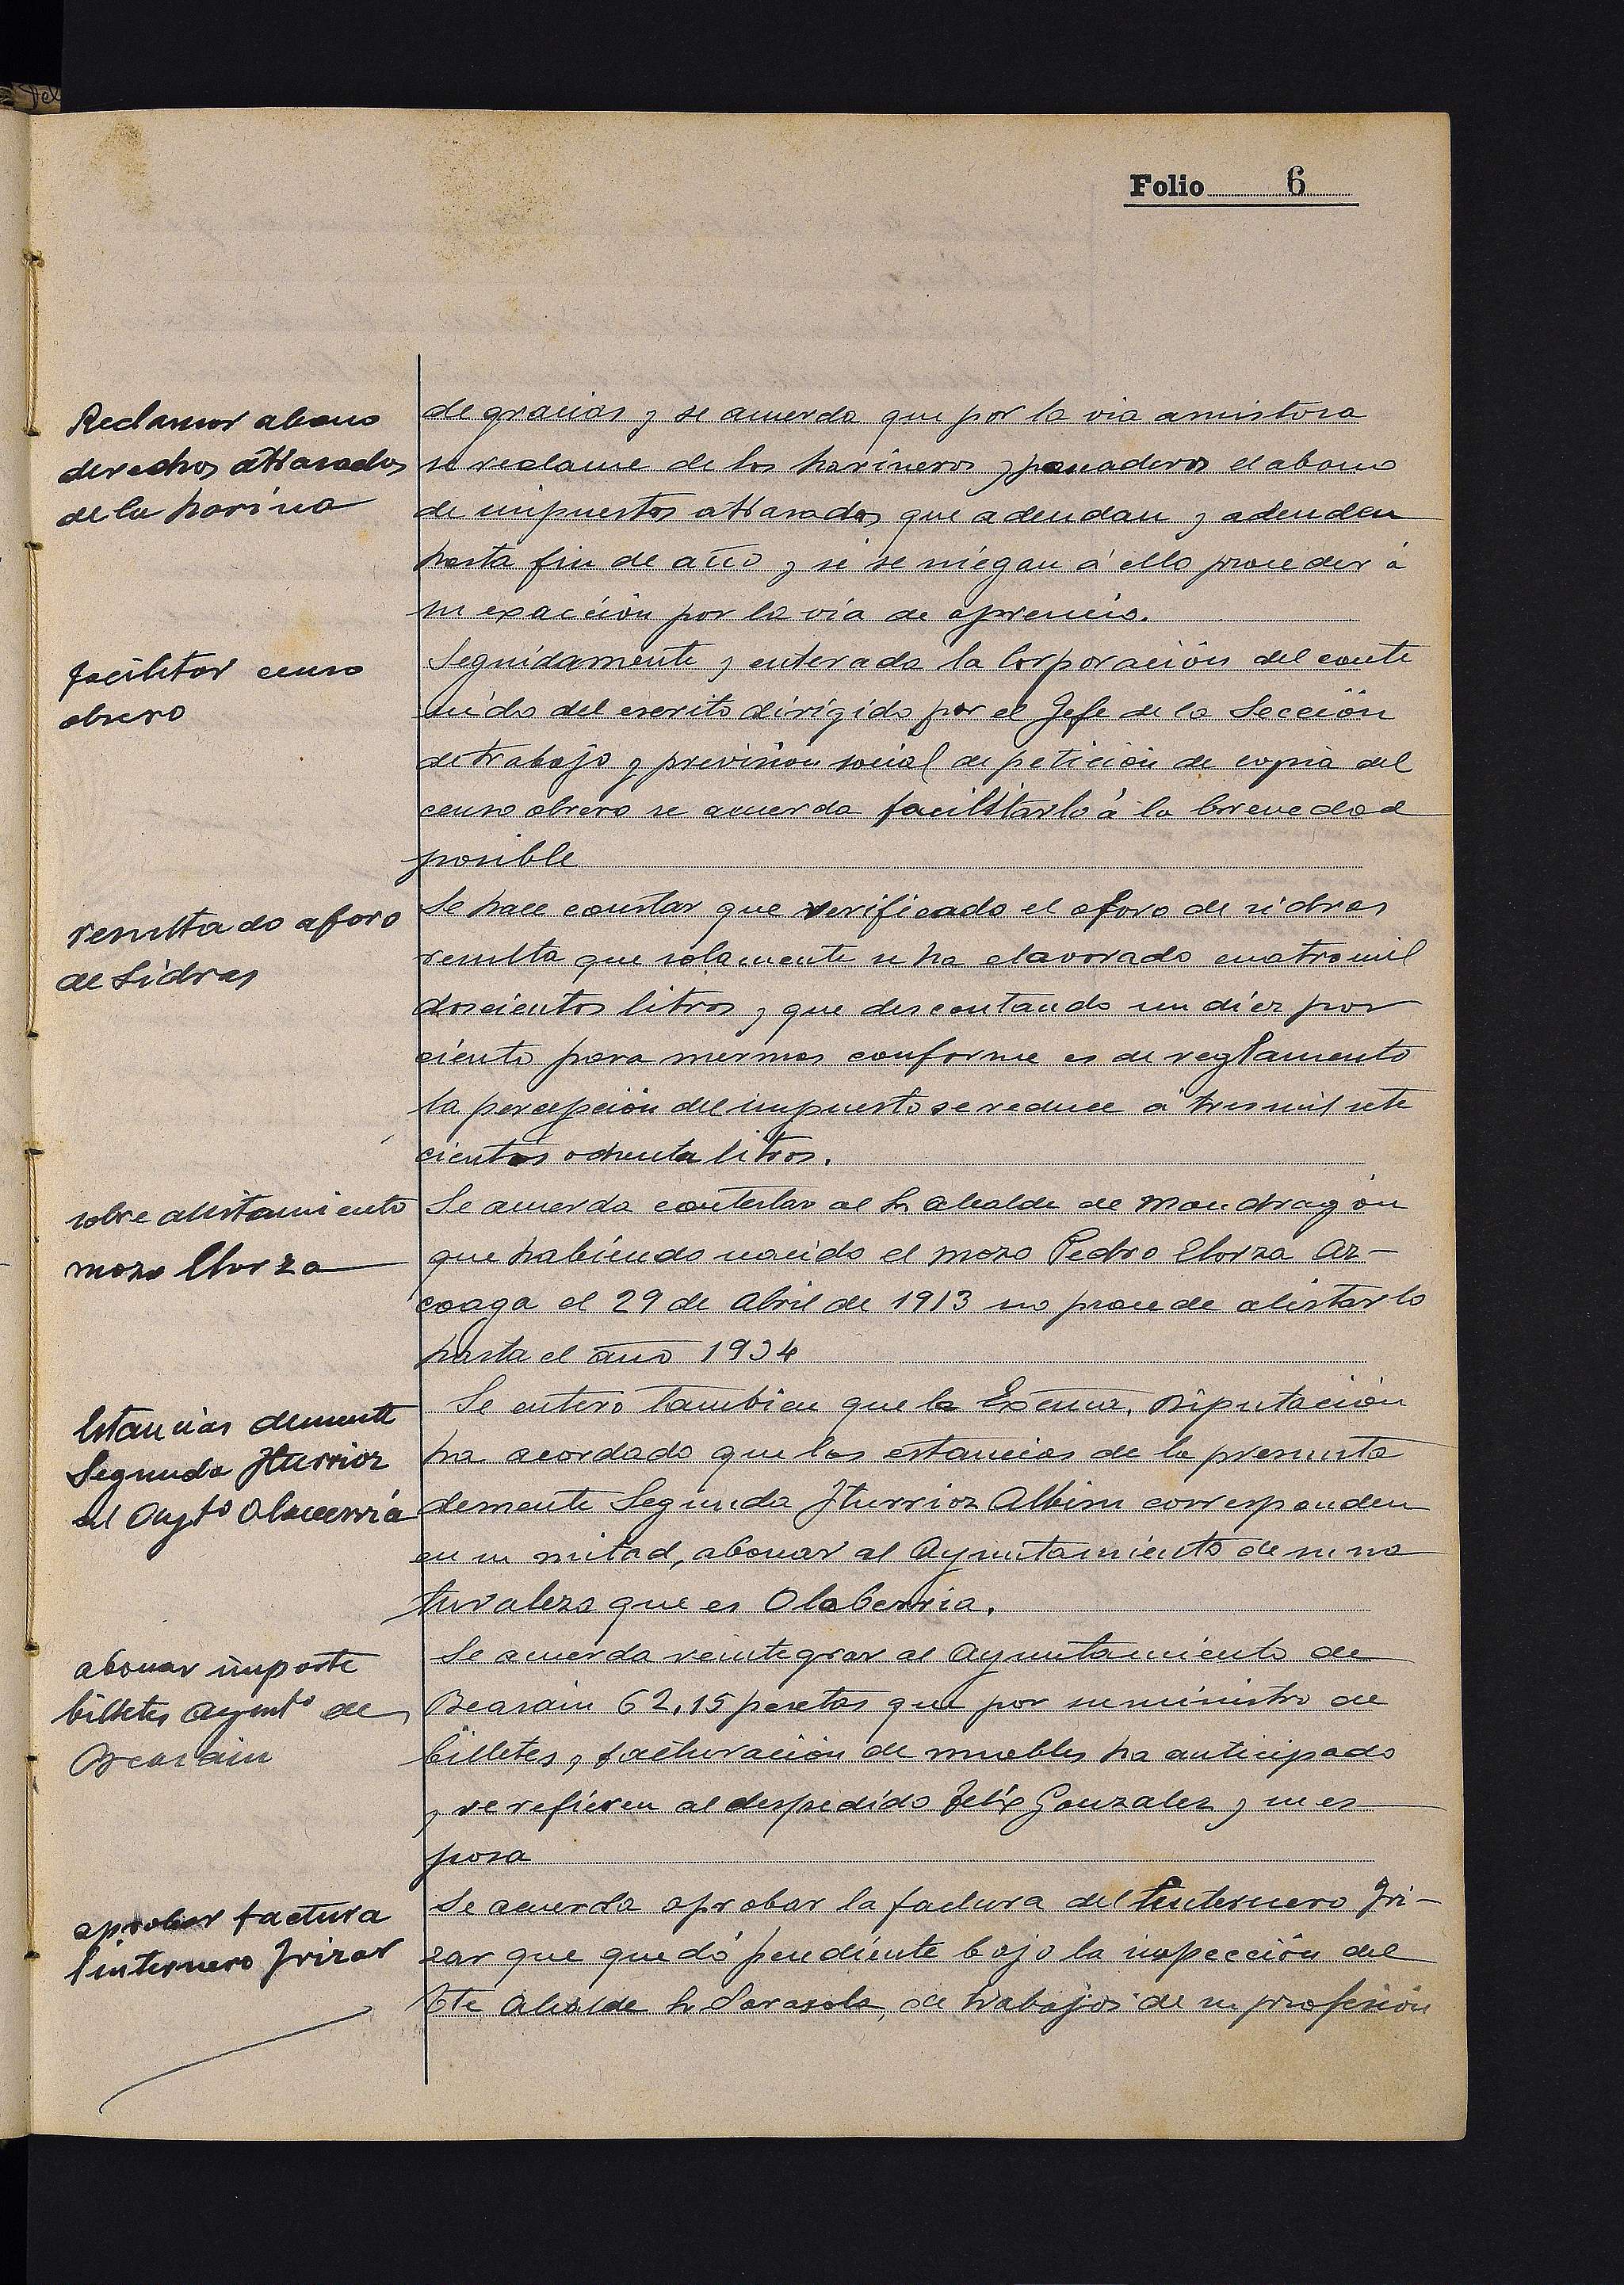 Folio 6
Reclamar abono
derechos atrasados
de la harina
de gracias y se acuerda que por la via amistosa
se reclame de los harineros y panaderos el abono
de impuestos atrasados que adeudan y adeuden
hasta fin de año y si se niegan á ello proceder á
su exacción por la via de apremio.
facilitar censo
obrero
Seguidamente y enterada la Corporación del conte
nido del escrito dirigido por el Jefe de la Sección
de trabajo y previsión social de petición de copia del
censo obrero se acuerda facilitarlo á la brevedad
posible
resultado aforo
de sidras
Se hace constar que verificado el aforo de sidras
resulta que solamente se ha elavorado cuatro mil
doscientos litros y que descontando un diez por
ciento para mermas conforme es de reglamento
la percepción del impuesto se reduce a tres mil sete
cientos ochenta litros.
sobre alistamiento
mozo Elorza
Se acuerda contestar al Sr Alcalde de Mondragón
que habiendo nacido el mozo Pedro Elorza Az-
coaga el 29 de Abril de 1913 no procede alistarlo
hasta el año 1934
Estancias demente
Segunda Iturrioz
al Aytº Olaverria
Se entero tambien que la Excma. Diputación
ha acordado que las estancias de la presunta
demente Segunda Iturrioz Albisu corresponden
en su mitad, abonar al Ayuntamiento de su na
turaleza que es Olaberria.
abonar importe
billetes Aymtº de
Beasain
Se acuerda reintegrar al Ayuntamiento de
Beasain 62,15 pesetas que por suministro de
billetes y facturación de muebles ha anticipado
y se refieren al despedido Felix Gonzalez y su es
posa
aprobar factura
linternero Irizar
Se acuerda aprobar la factura del linternero Iri-
zar que quedó pendiente bajo la inspección del
Tte Alcalde Sr Sarasola, de trabajos de su profesión